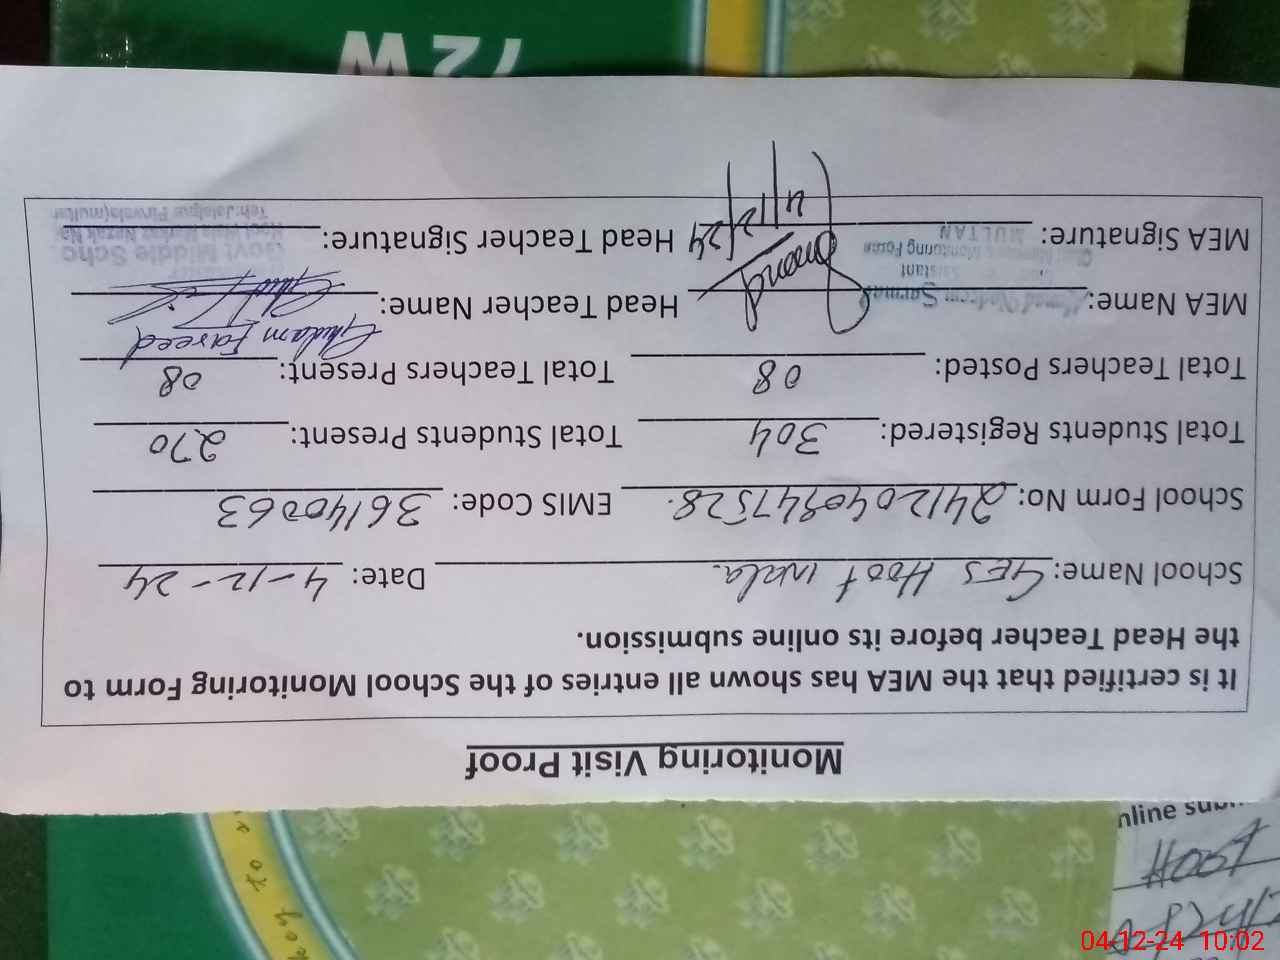 Monitoring Visit Proof
It is certified that the MEA has shown all entries of the School Monitoring Form to
the Head Teacher before its online submission.
School Name: GES Hoot wala. Date: 4-12-24
School Form No: 2412040947528. EMIS Code: 36140063
Total Students Registered: 304 Total Students Present: 270
Total Teachers Posted: 08 Total Teachers Present: 08
MEA Name: Sarmad Head Teacher Name: Ghulam Fareed
MEA Signature: 4/12/24 Head Teacher Signature:
Monitoring Force
MULTAN
Govt Middle Scho
Teh: Jalalpur Pirwala (multan
72W
nline sub
Hoot
04-12-24 10:02